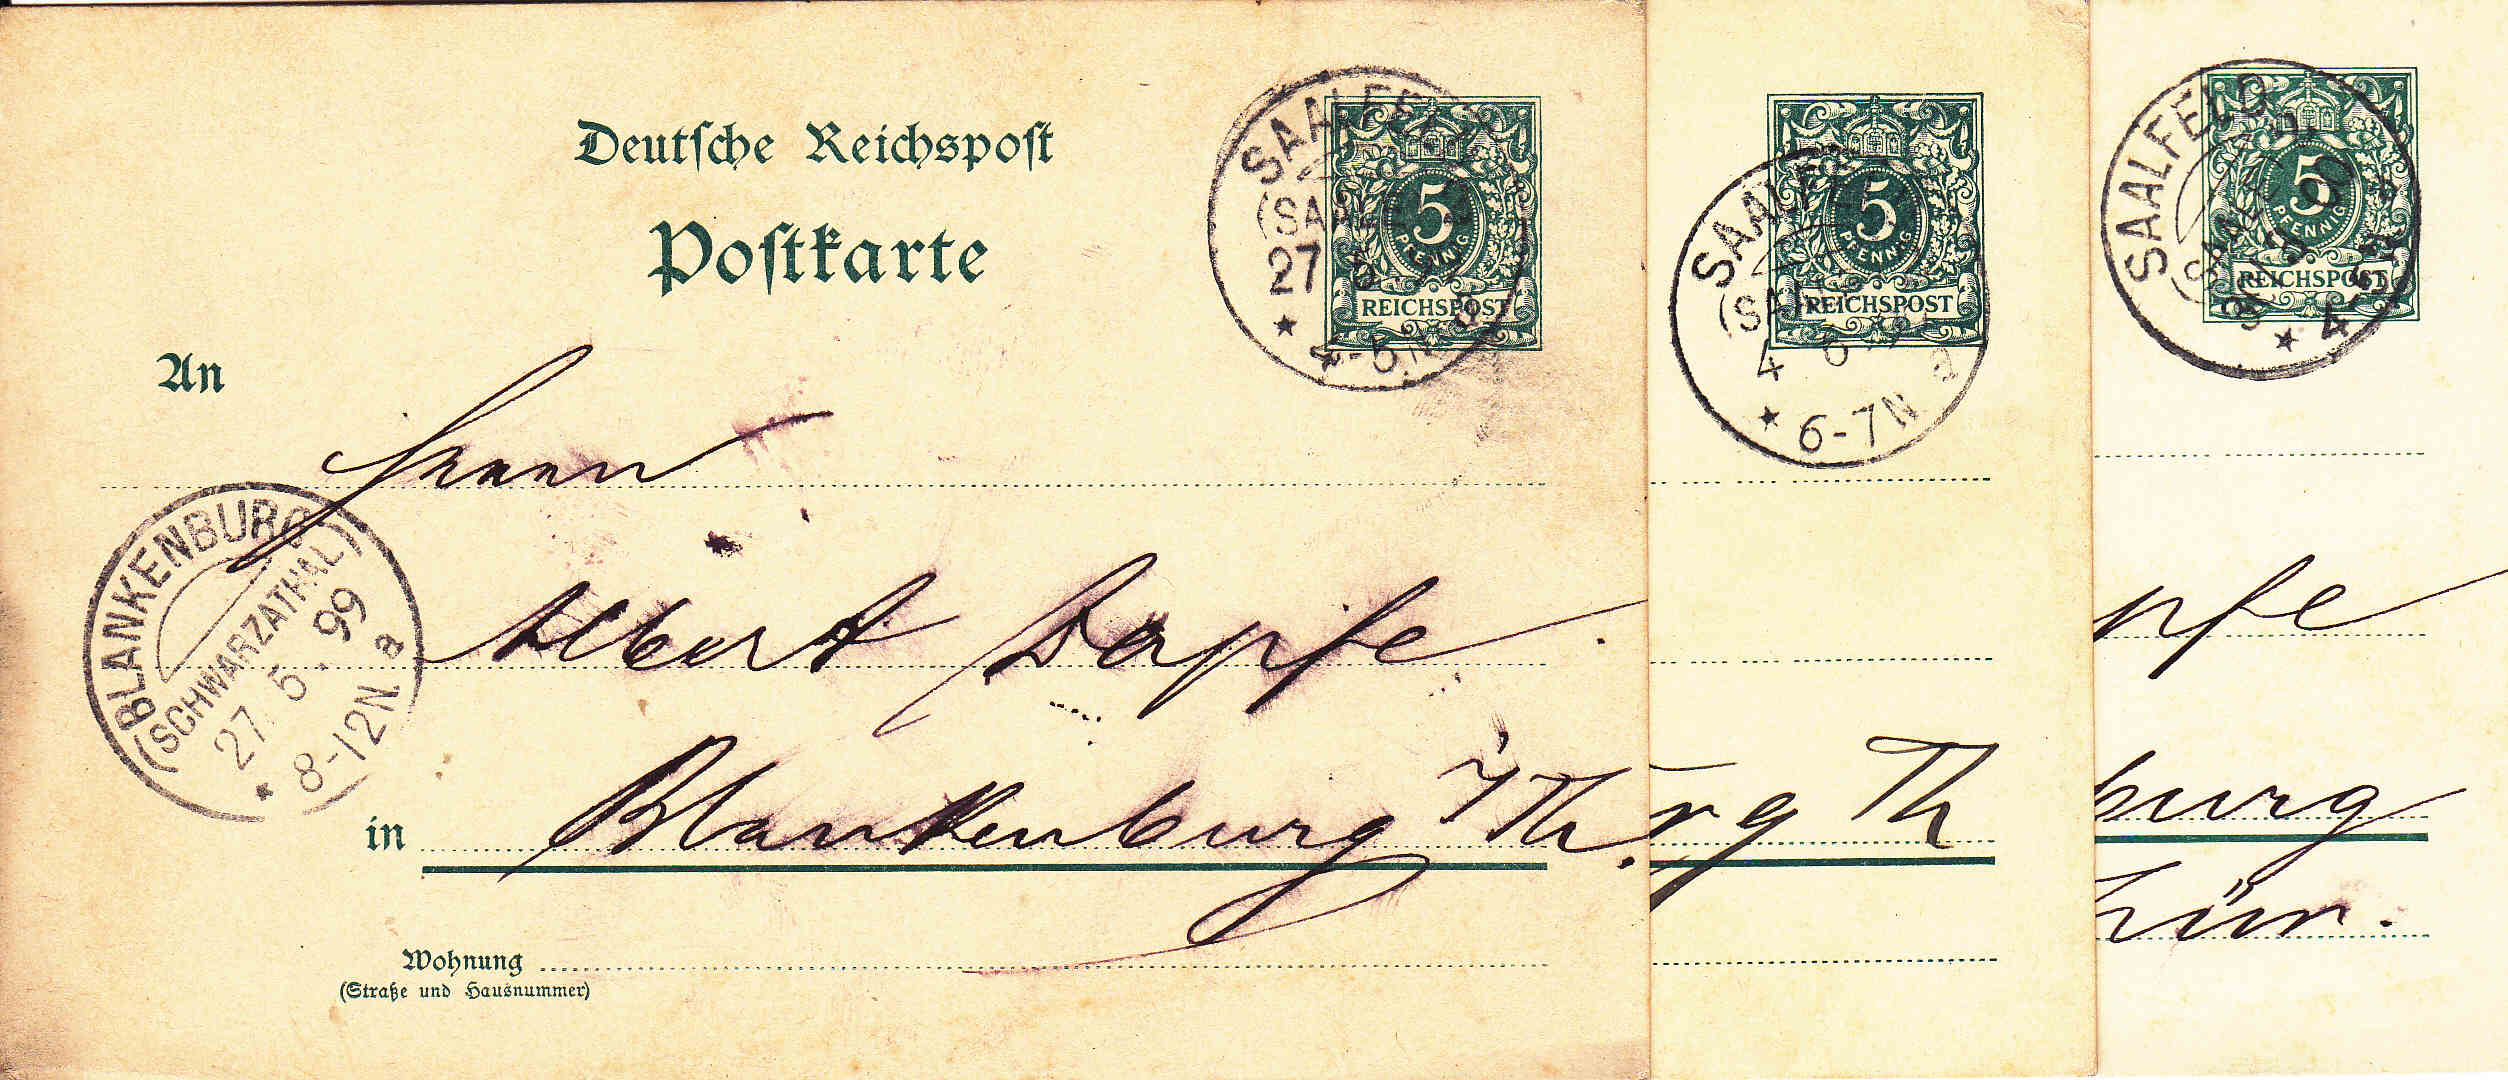 Deutsche Reichspost
Postkarte
SAALFELD
(SAALE)
27 5 99
* 4-5 N. a
5
PFENNIG
REICHSPOST
An
Herrn
BLANKENBURG
(SCHWARZATHAL)
27. 5. 99
* 8-12 N. a
Albert Dapfe
in Blankenburg i/Th.
Wohnung
(Straße und Hausnummer)
SAALFELD
(SAALE)
4 6
* 6-7 N a
5
PFENNIG
REICHSPOST
rg Th
SAALFELD
(SAALE)
* 4-5 N
5
PFENNIG
REICHSPOST
pfe
burg
hür.